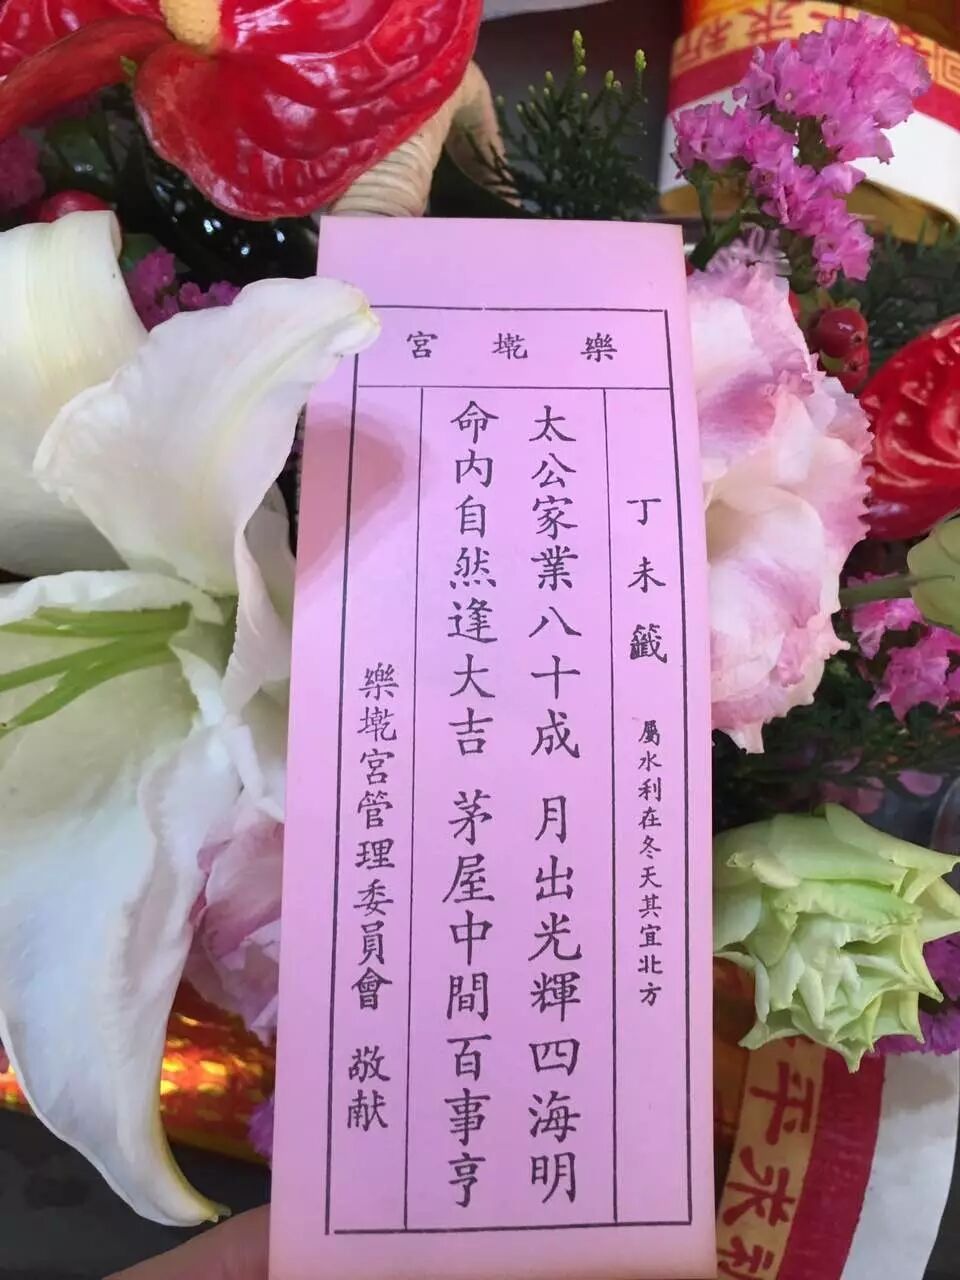 樂墘宮
丁未籤 屬水利在冬天其宜北方
太公家業八十成 月出光輝四海明
命內自然逢大吉 茅屋中間百事亨
樂墘宮管理委員會 敬献
祈求平
祈求平